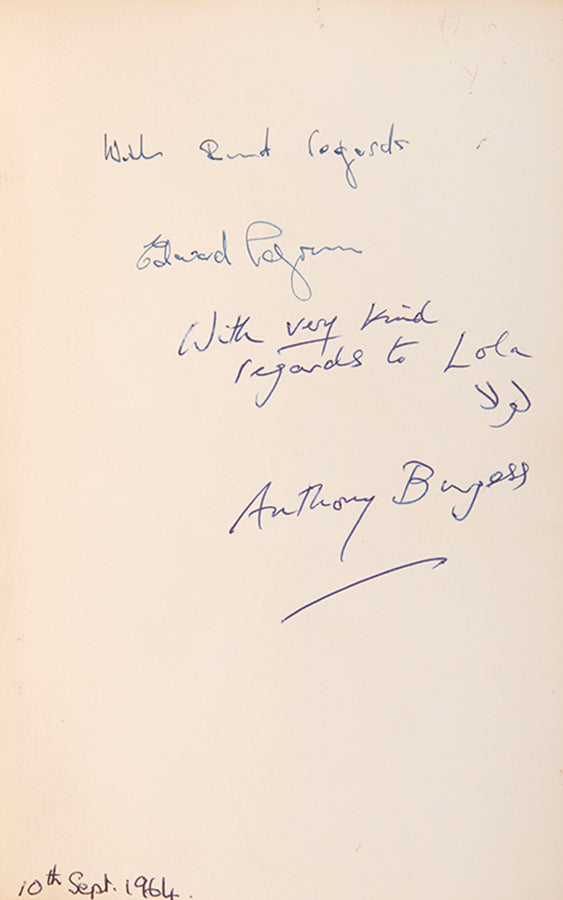 With kind regards
Edward Pegram
With very kind
regards to Lola
لولا
Anthony Burgess
10th Sept. 1964.